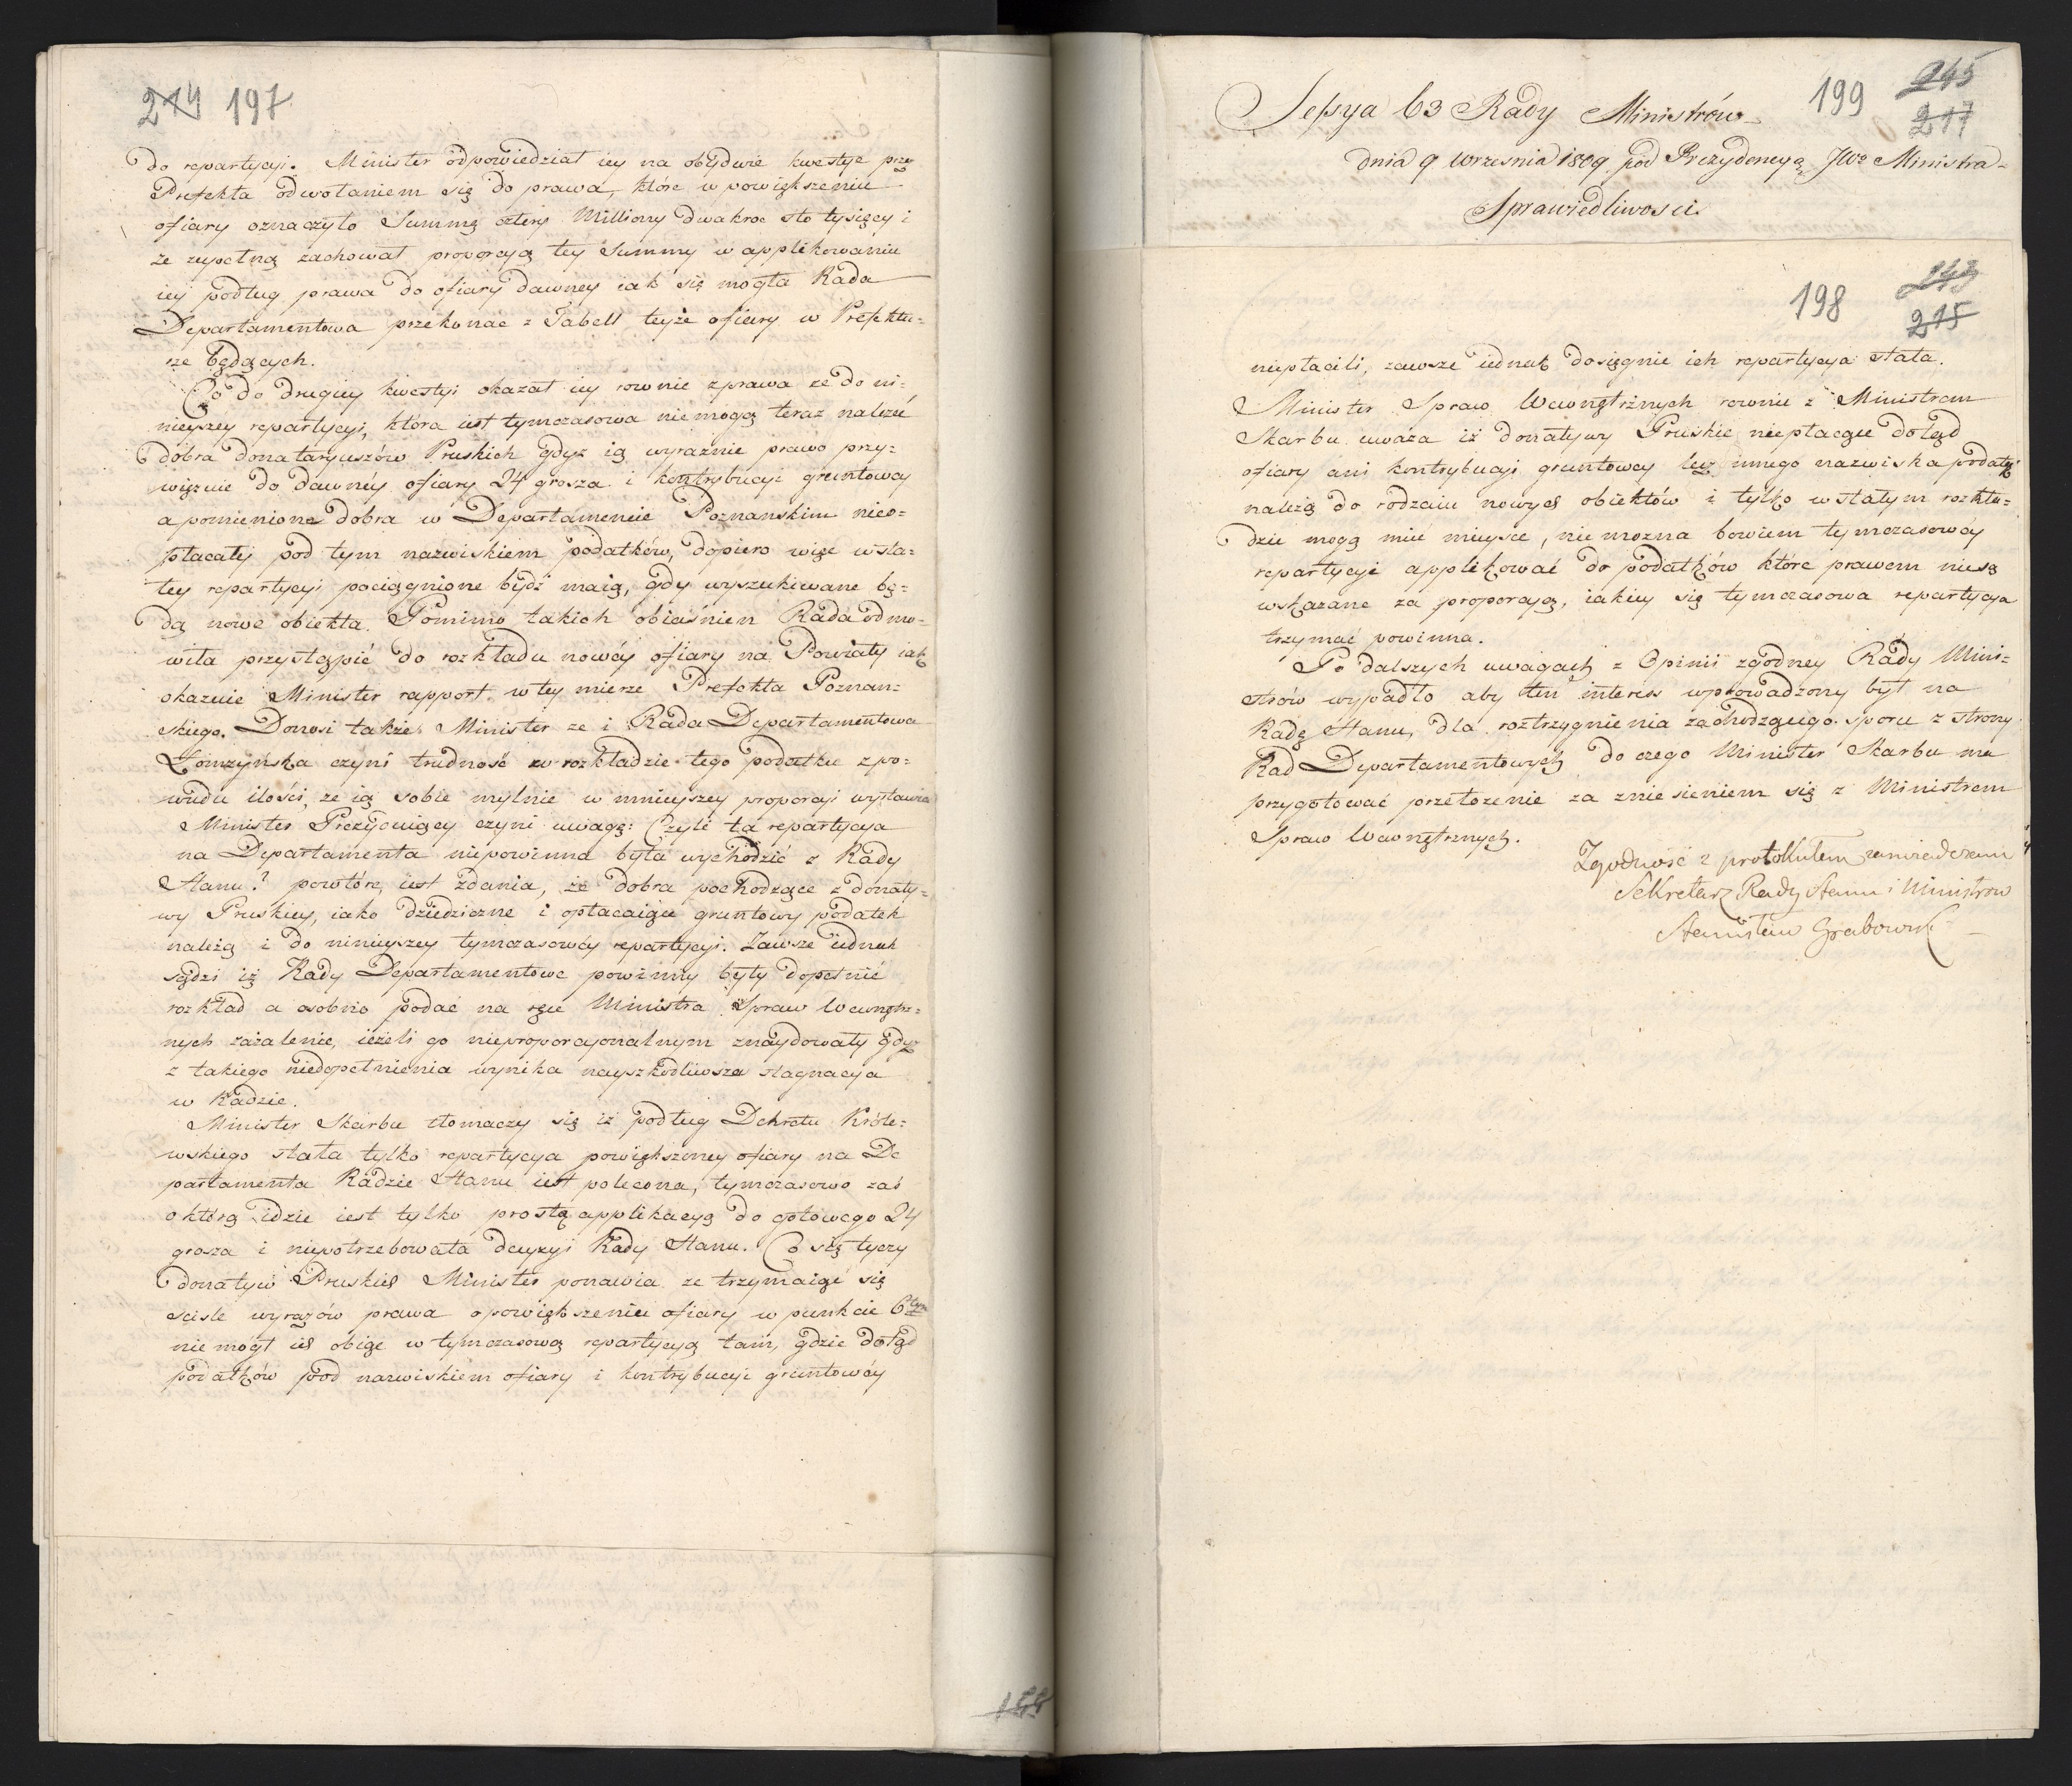 214 197
do repartycyi. Minister odpowiedział iey na obydwie kwestye przez
Prefekta odwołaniem się do prawa, które w powiększeniu
ofiary oznaczyło Summę cztery Milliony dwakroc sto tysięcy i
że zupełną zachował proporcyą tey Summy w applikowaniu
iey podług prawa do ofiary dawney iak się mogła Rada
Departamentowa przekonac z Tabell teyże ofiary w Prefektu=
rze będących.
Co do drugiey kwestyi okazał iey rownie z prawa ze do ni=
nieyszey repartycyi, która iest tymczasowa nie mogą teraz należeć
dobra donataryuszów Pruskich gdyż ią wyraźnie prawo przy=
więzuie do dawnéy ofiary 24 grosza i kontrybucyi gruntowey
a pomienione dobra w Departamencie Poznanskim nieo=
płacały pod tym nazwiskiem podatków, dopiero więc w sta=
łey repartycyi pociągnione bydź maią, gdy wyszukiwane bę=
dą nowe obiekta. Pomimo takich obiaśnien Rada odmo=
wiła przystąpić do rozkładu nowéy ofiary na Powiaty iak
okazuie Minister rapport w tey mierze Prefekta Poznan=
skiego. Donosi także Minister ze i Rada Departamentowa
Łomzyńska czyni trudność w rozkładzie tego podatku z po=
wodu ilości, ze ią sobie mylnie w mnieyszey proporcyi wystawia
Minister Prezyduiący czyni uwagę: Czyli ta repartycya
na Departamenta niepowinna była wychodzić z Rady
Stanu? powtóre, iest zdania, że dobra pochodzące z donaty=
wy Pruskiey, iako dziedziczne i opłacaiące gruntowy podatek
należą i do ninieyszey tymczasowéy repartycyi. Zawsze iednak
sądzi iż Rady Departamentowe powinny były dopełnić
rozkład a osobno podać na ręce Ministra Spraw Wewnętrz=
nych zażalenie, ieżeli go nieproporcyonalnym znaydowały gdyż
z takiego niedopełnienia wynika nayszkodliwsza stagnacya
w Rządzie.
Minister Skarbu tłomaczy się iż podług Dekretu Króle=
wskiego stała tylko repartycya powiększoney ofiary na De
partamenta Radzie Stanu iest polecona, tymczasowo zaś
o którą idzie iest tylko prostą applikacyą do gotowego 24
grosza i niepotrzebowała decyzyi Rady Stanu. Co się tyczy
donatyw Pruskich Minister ponawia ze trzymaiąc się
scisle wyrazów prawa o powiększeniu ofiary w punkcie 6tym
nie mógł ich obiąc w tymczasową repartycyą tam, gdzie dotąd
podatków pod nazwiskiem ofiary i kontrybucyi gruntowéy
199 245
217
Sessya 63 Rady Ministrów
dnia 9 Wrzesnia 1809 pod Prezydencyą JWo Ministra
Sprawiedliwosci.
198 243
215
niepłacili, zawsze iednak dosięgnie ich repartycya stała.
Minister Spraw Wewnętrznych rownie z Ministrem
Skarbu uważa iż donatywy Pruskie niepłacące dotąd
ofiary ani kontrybucyi gruntowey lecz innego nazwiska podatki
należą do rodzaiu nowych obiektów i tylko w stałym rozkła=
dzie mogą mieć mieysce, nie mozna bowiem tymczasowey
repartycyi applikować do podatków które prawem niesą
wskazane za proporcyą, iakiey się tymczasowa repartycya
trzymać powinna.
Po dalszych uwagach z Opinii zgodney Rady Mini=
strów wypadło aby ten interes wprowadzony był na
Radę Stanu, dla roztrzygnienia zachodzącego sporu z strony
Rad Departamentowych do czego Minister Skarbu ma
przygotować przełozenie za zniesieniem się z Ministrem
Spraw Wewnętrznych.
Zgodność z protokułem zaswiadczam
Sekretarz Rady Stanu i Ministrow
Stanisław Grabowski